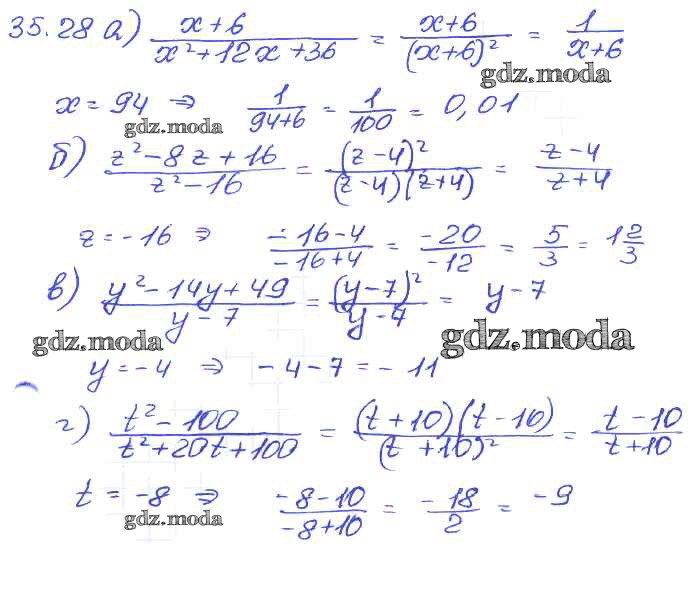 35.28 а) (x+6)/(x²+12x+36) = (x+6)/(x+6)² = 1/(x+6)
gdz.moda
x = 94 ⇒ 1/(94+6) = 1/100 = 0,01
gdz.moda
б) (z²-8z+16)/(z²-16) = (z-4)²/((z-4)(z+4)) = (z-4)/(z+4)
z = -16 ⇒ (-16-4)/(-16+4) = (-20)/(-12) = 5/3 = 1 2/3
в) (y²-14y+49)/(y-7) = (y-7)²/(y-7) = y-7
gdz.moda gdz.moda
y = -4 ⇒ -4-7 = -11
г) (t²-100)/(t²+20t+100) = ((t+10)(t-10))/(t+10)² = (t-10)/(t+10)
t = -8 ⇒ (-8-10)/(-8+10) = (-18)/2 = -9
gdz.moda